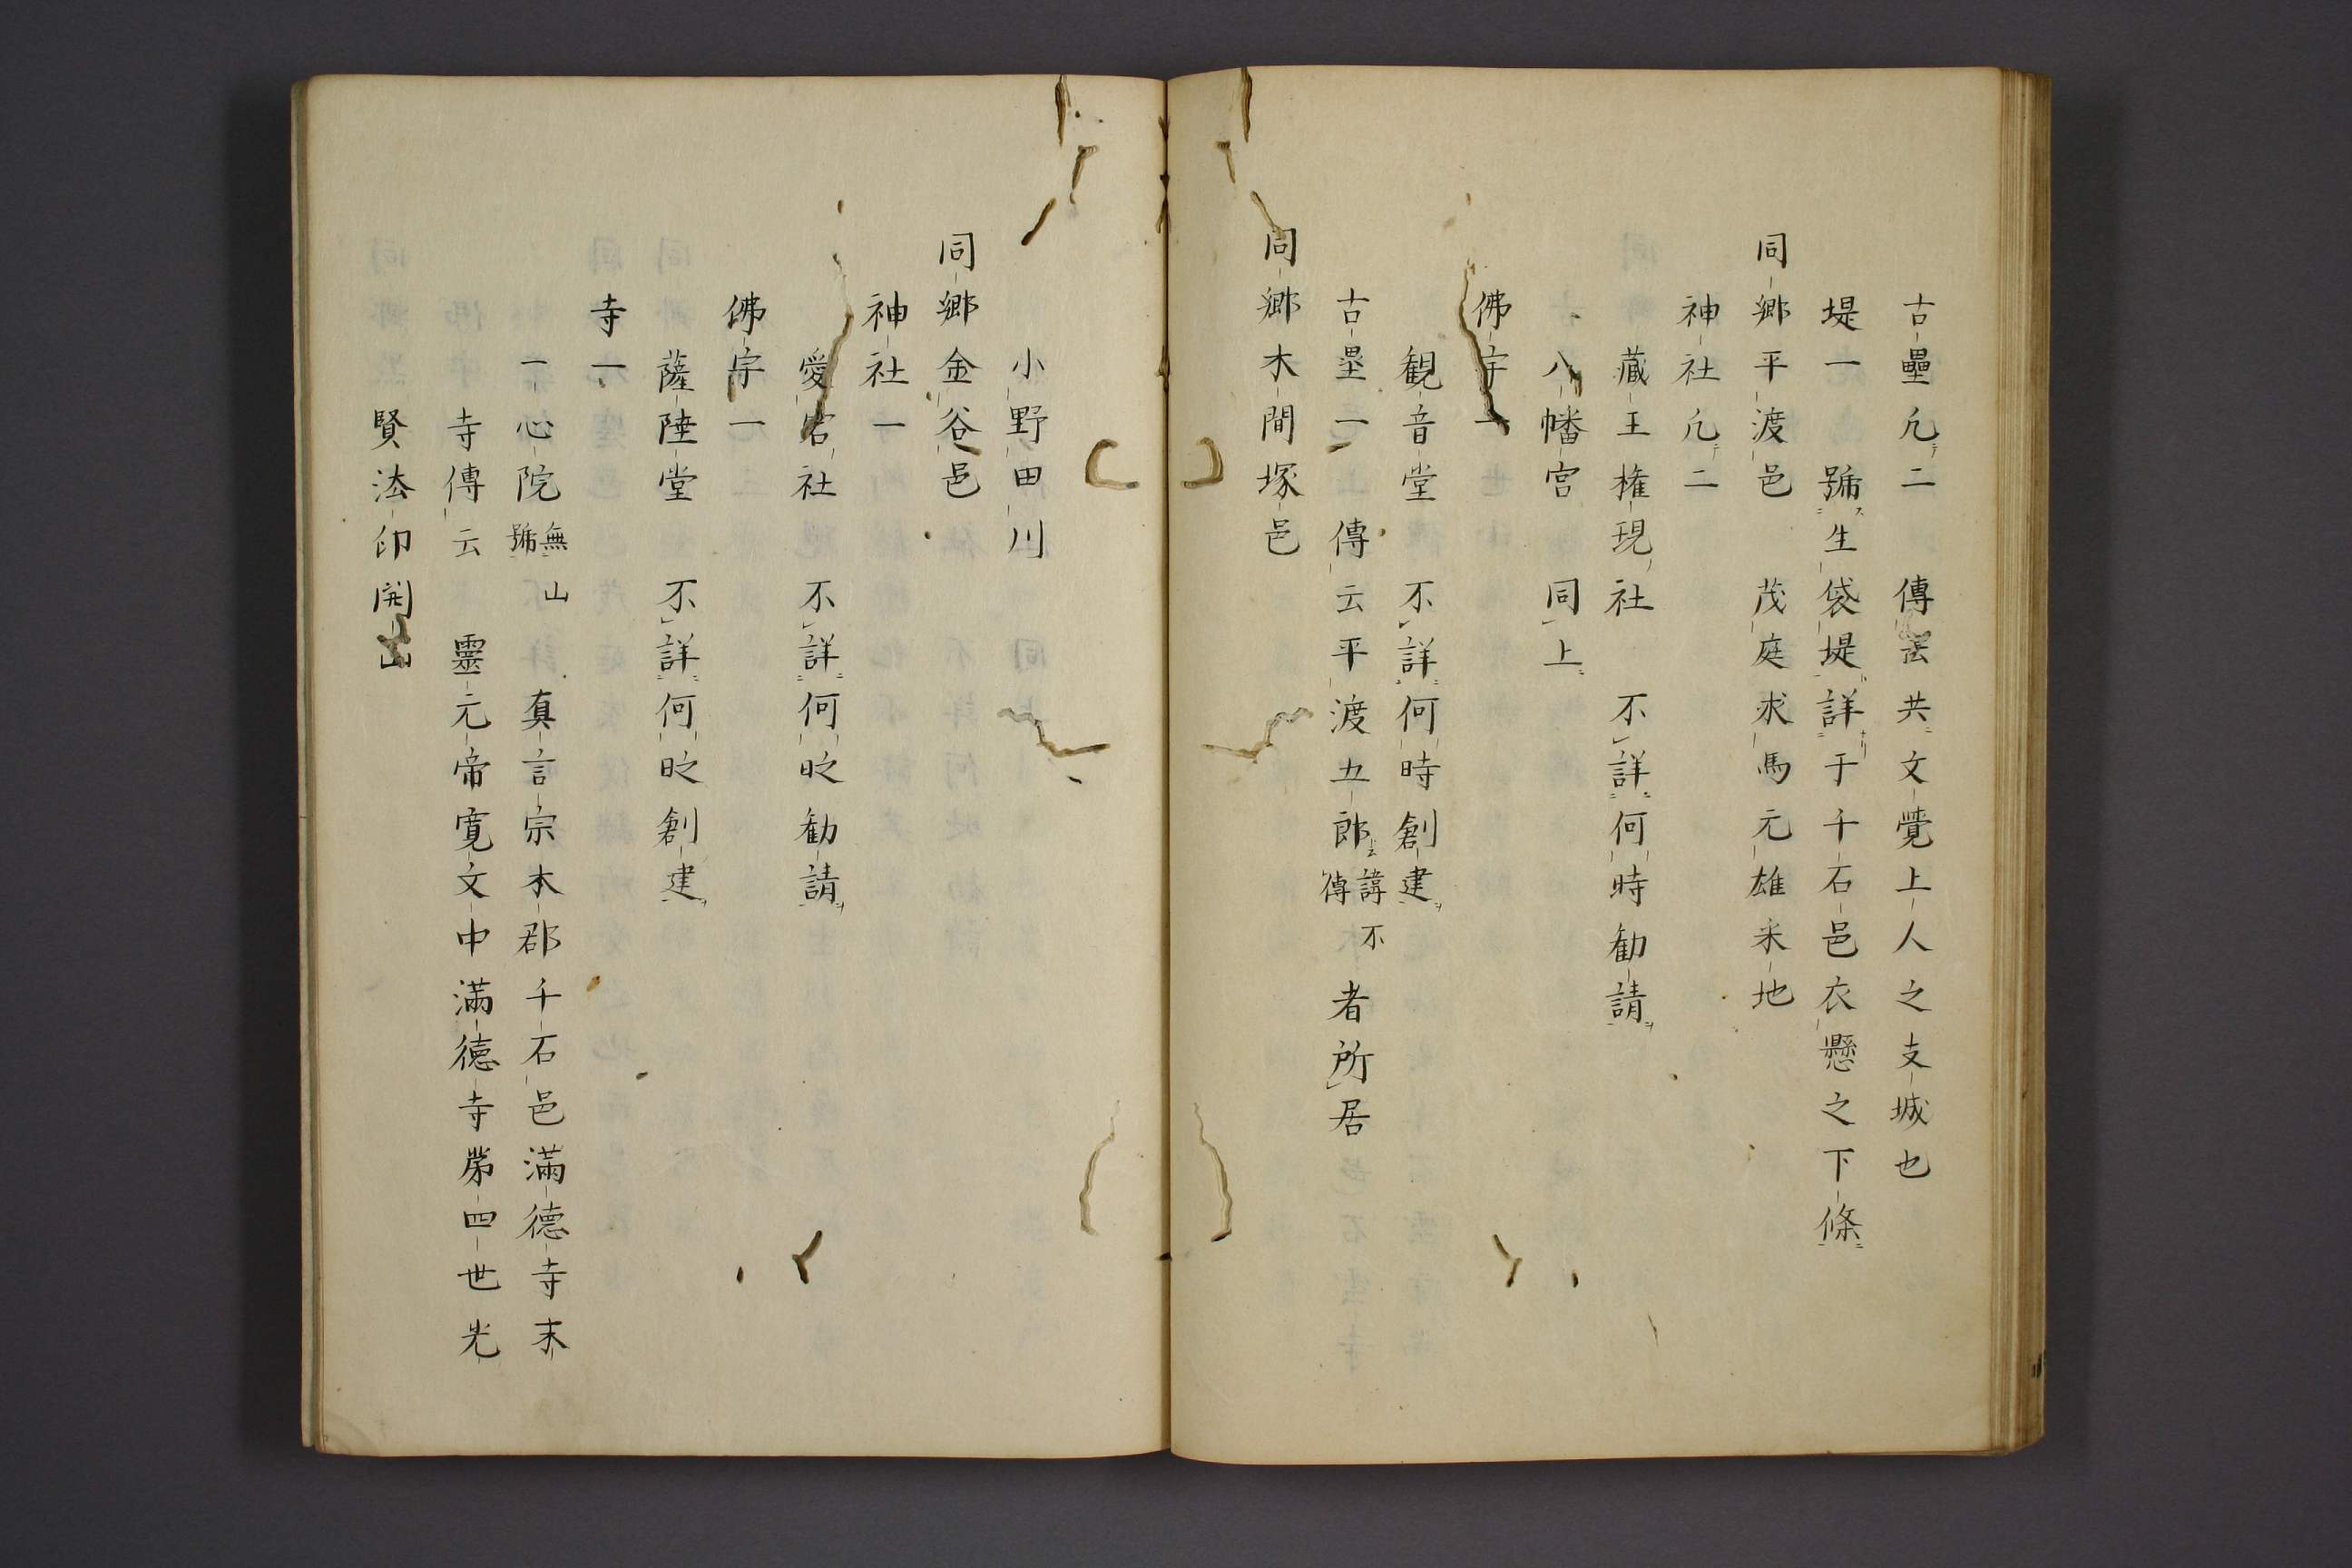 古壘凢二　傳云共文覺上人之支城也
堤一　號生袋堤詳于千石邑衣懸之下條
同郷平渡邑　茂庭求馬元雄釆地
神社凢二
藏王権現社　不詳何時勧請
八幡宮　同上
佛宇一
観音堂　不詳何時創建
古塁一　傳云平渡五郎諱不傳者所居
同郷木間塚邑
小野田川
同郷金谷邑
神社一
愛宕社　不詳何时勧請
佛宇一
薩陲堂　不詳何时創建
寺一
一心院無山號　真言宗本郡千石邑滿德寺末
寺傳云　靈元帝寛文中滿德寺苐四世光
賢法印開山